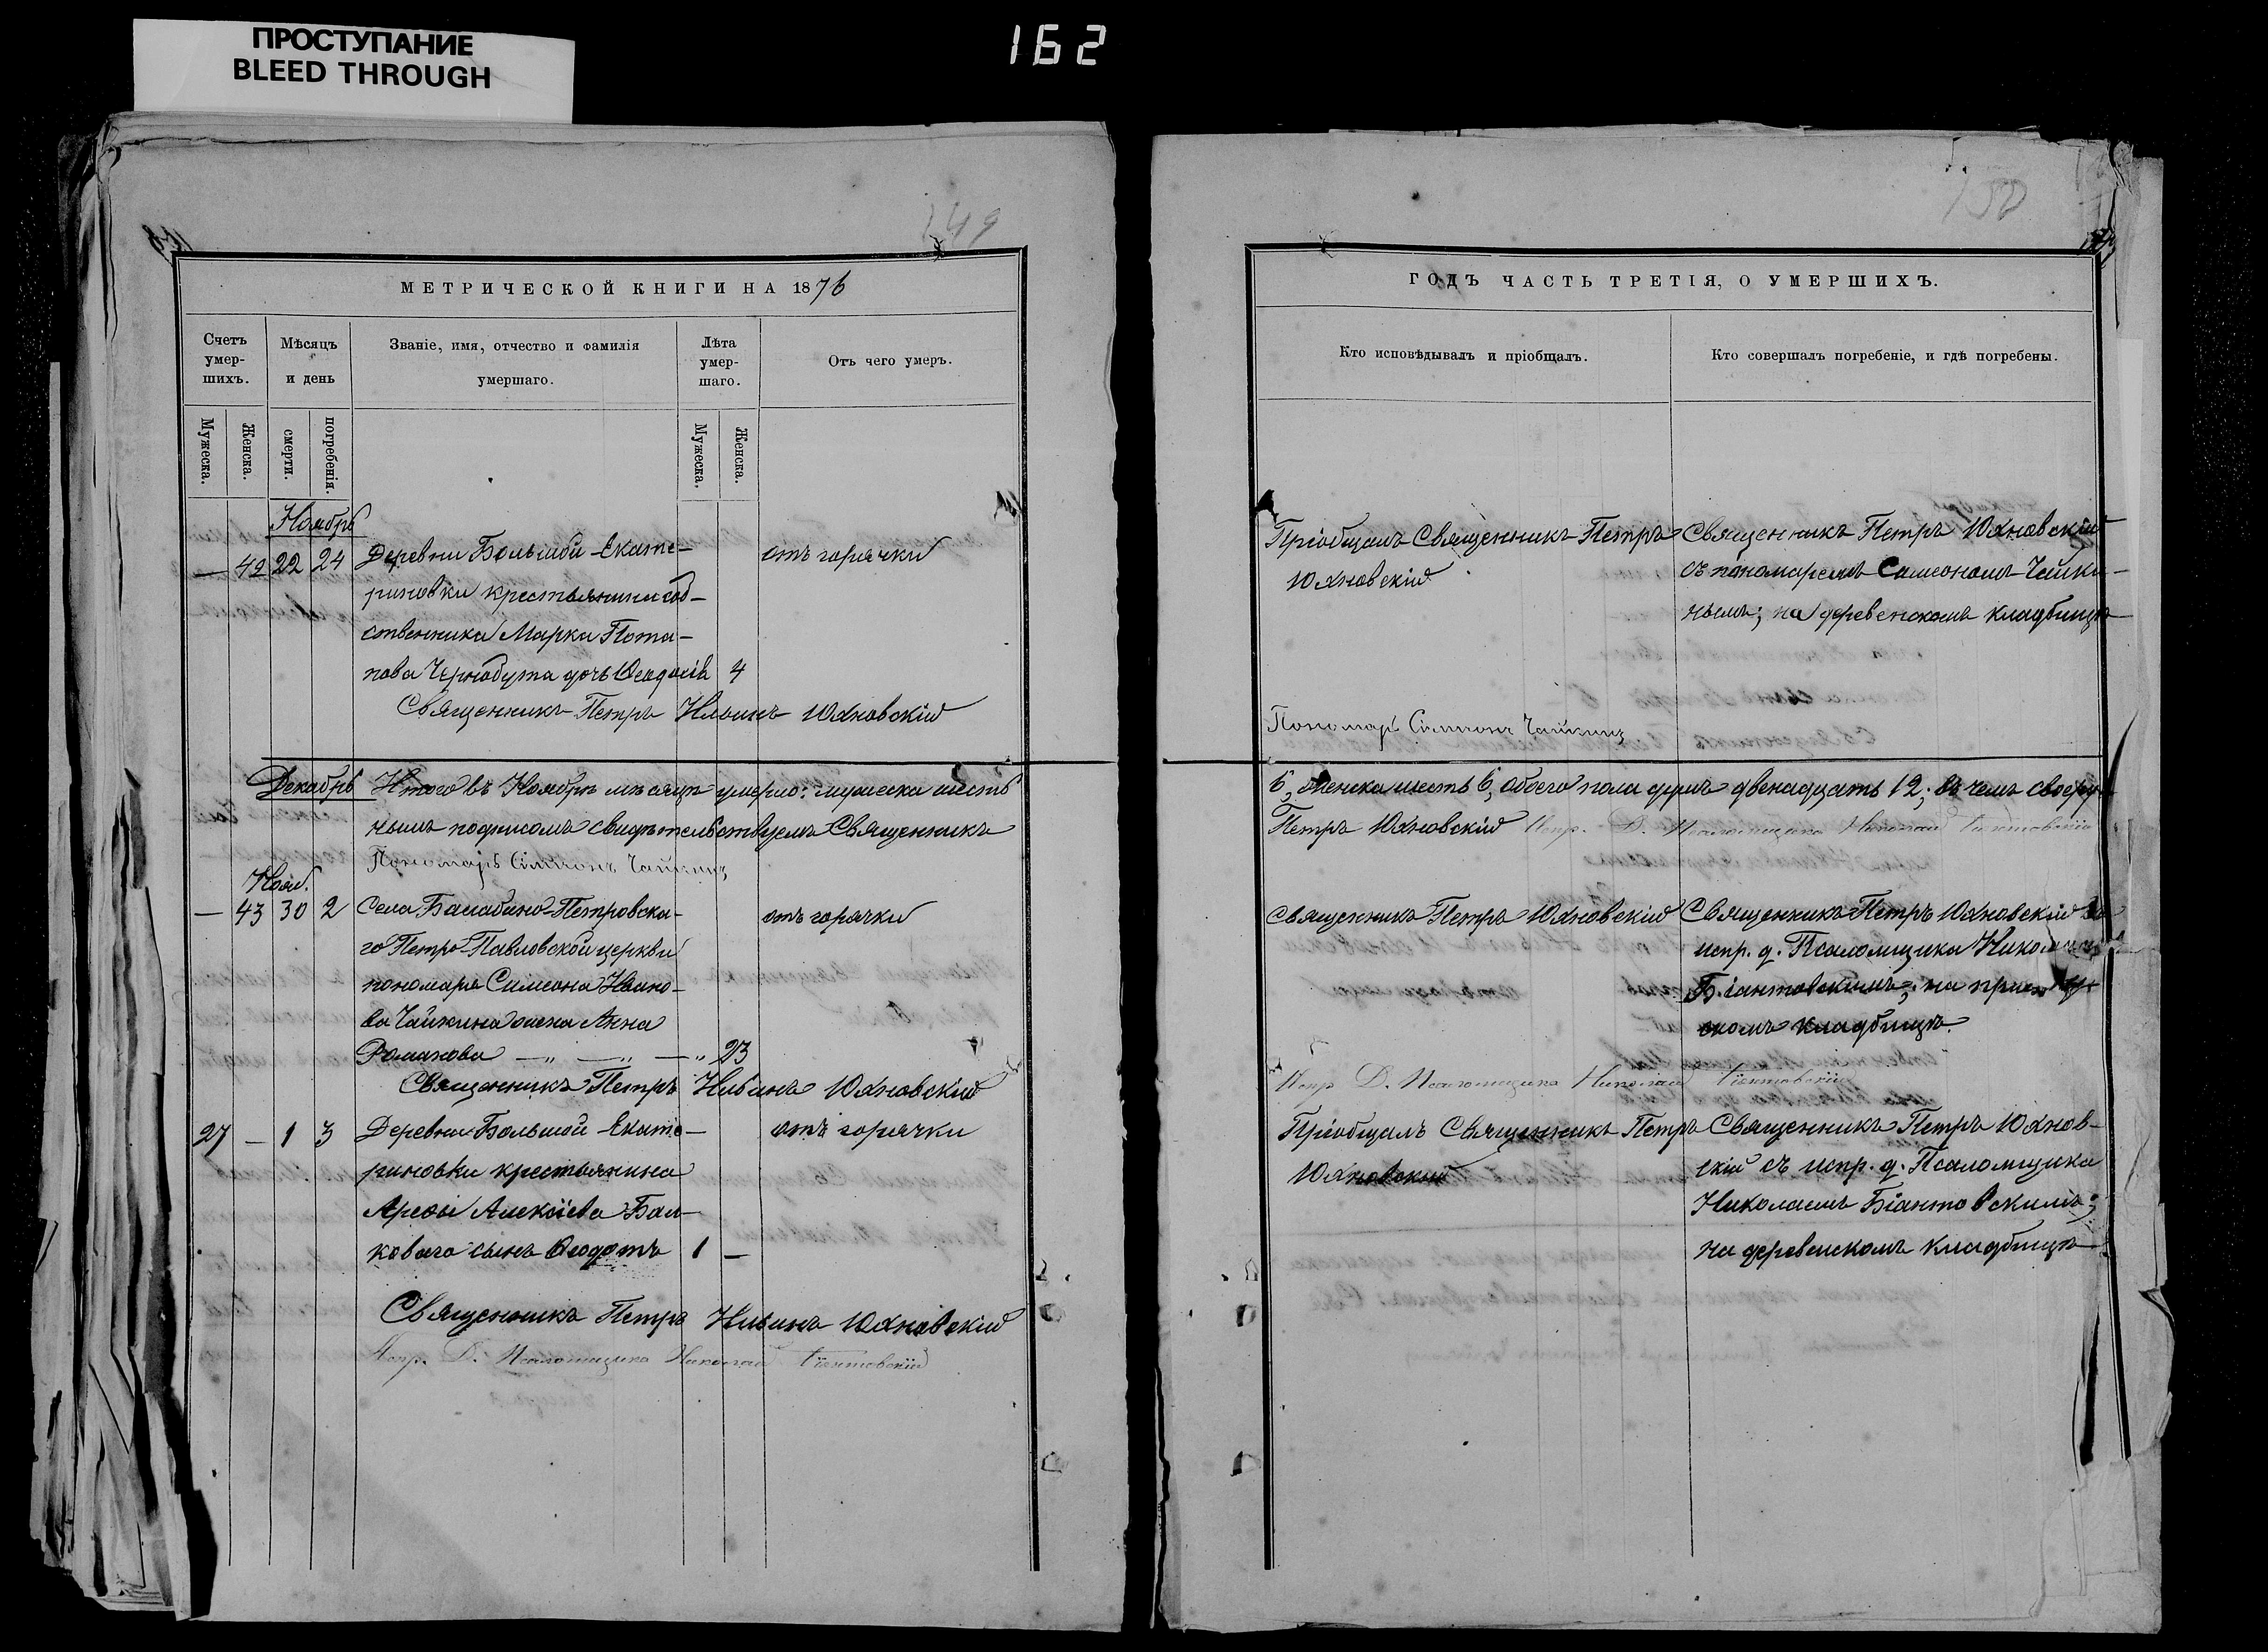 ПРОСТУПАНИЕ
BLEED THROUGH
162
149
МЕТРИЧЕСКОЙ КНИГИ НА 1876
Счетъ умер-шихъ.
Мѣсяцъ и день
Званіе, имя, отчество и фамилія умершаго.
Лѣта умер-шаго.
Отъ чего умеръ.
Мужеска.
Женска.
смерти.
погребенія.
Мужеска.
Женска.
Ноябрь
— 42 22 24 Деревни Большой Екате- отъ горячки
риновки крестьянина соб-
ственника Марка Пота-
пова Чернобута дочь Ѳеодосія 4
Священникъ Петръ Ильинъ Юхновскій
Декабрь Итого въ Ноябрѣ мѣсяцѣ умерло: мужеска шесть
нымъ подписомъ свидѣтельствуемъ Священникъ
Пономарь Сімеонъ Чайкинъ
Нояб.
— 43 30 2 Села Балабино-Петровска- отъ горячки
го Петро-Павловской церкви
пономаря Симеона Ивано-
ва Чайкина жена Анна
Романова — „ — „ — „ 23
Священникъ Петръ Ильинъ Юхновскій
27 — 1 3 Деревни Большой Екате- отъ горячки
риновки крестьянина
Арефы Алексіева Бал-
коваго сынъ Ѳеодотъ 1 —
Священникъ Петръ Ильинъ Юхновскій
Испр. Д. Псаломщика Николай Біантовскій
150
ГОДЪ ЧАСТЬ ТРЕТІЯ, О УМЕРШИХЪ.
Кто исповѣдывалъ и пріобщалъ.
Кто совершалъ погребеніе, и гдѣ погребены.
Пріобщалъ Священникъ Петръ
Юхновскій
Священникъ Петръ Юхновскій
съ пономаремъ Симеономъ Чайки-
нымъ; на деревенскомъ кладбищѣ
Пономарь Сімеонъ Чайкинъ
6, женска шесть 6, обоего пола душъ двенадцать 12; въ чемъ своеруч-
Петръ Юхновскій Испр. Д. Псаломщика Николай Біантовскій
Священникъ Петръ Юхновскій
Священникъ Петръ Юхновскій
испр. д. Псаломщика
Біантовскимъ; на
скомъ кладбищѣ.
Испр Д. Псаломщика Николай Біантовскій
Пріобщалъ Священникъ Петръ
Юхновскій
Священникъ Петръ Юхнов-
скій съ испр. д. Псаломщика
Николаемъ Біантовскимъ;
на деревенскомъ кладбищѣ